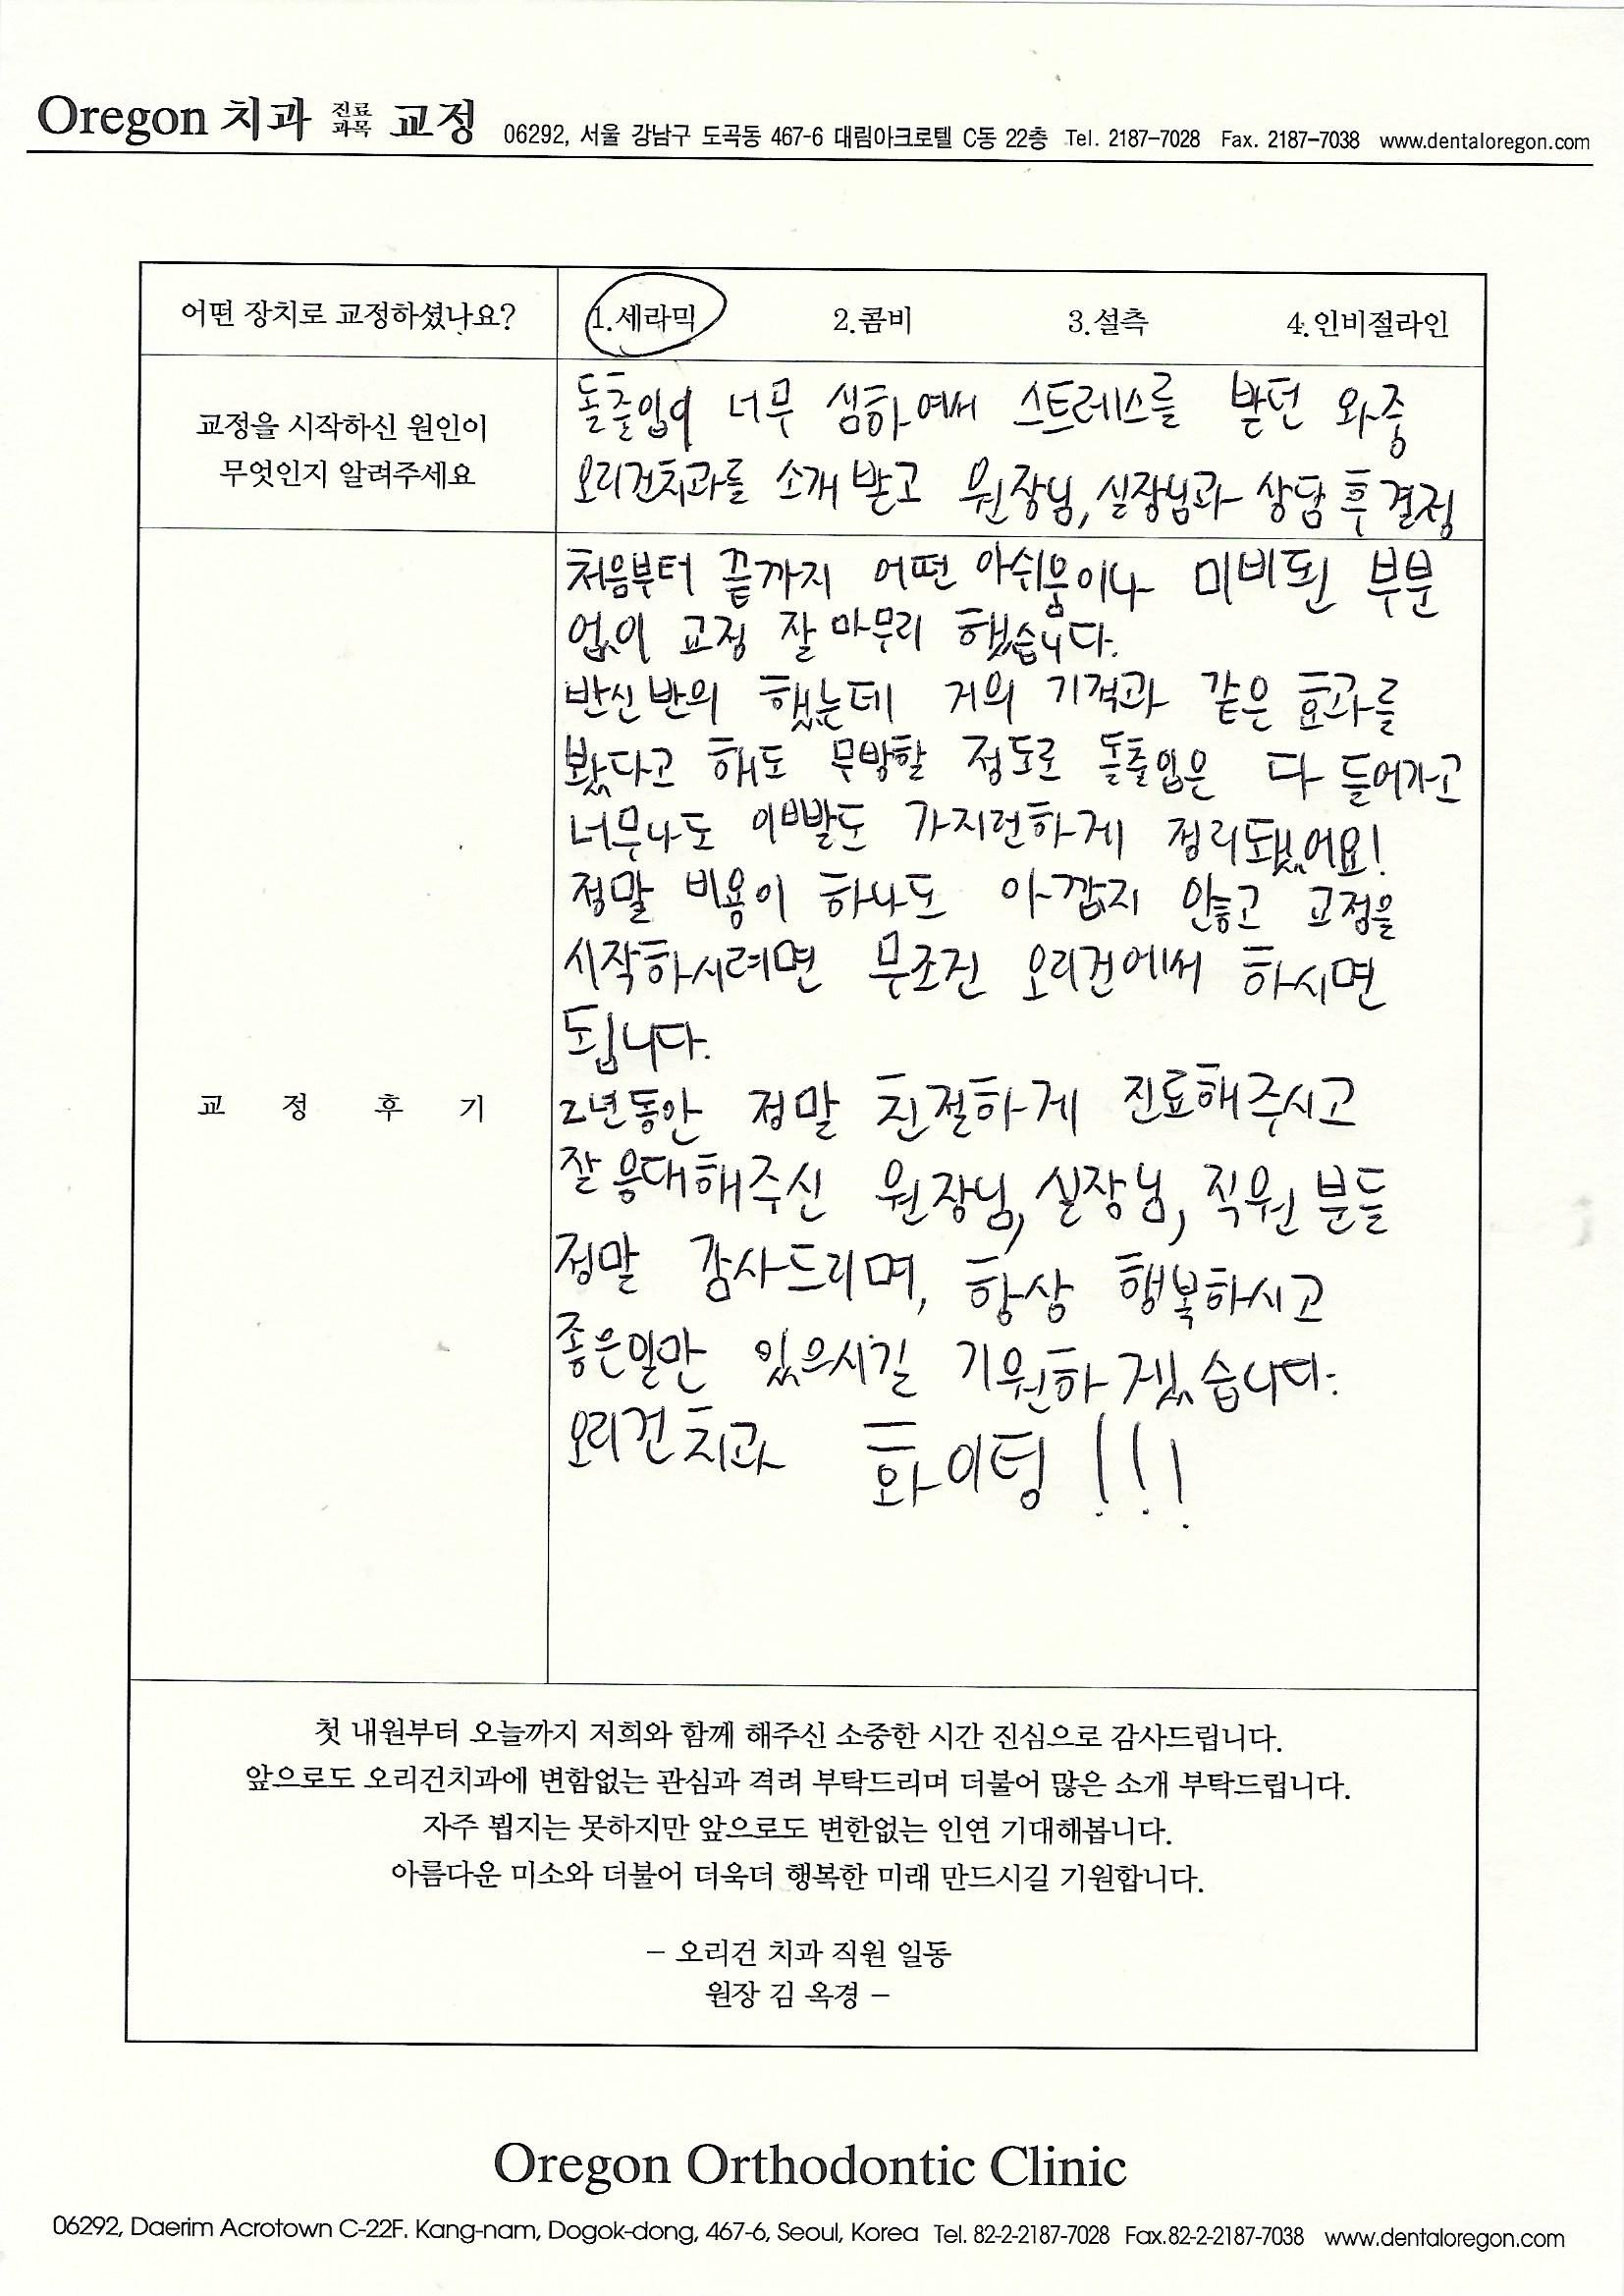 Oregon 치과 진료과목 교정 06292, 서울 강남구 도곡동 467-6 대림아크로텔 C동 22층 Tel. 2187-7028 Fax. 2187-7038 www.dentaloregon.com
어떤 장치로 교정하셨나요? 1.세라믹 2.콤비 3.설측 4.인비절라인
교정을 시작하신 원인이
무엇인지 알려주세요
돌출입이 너무 심하여서 스트레스를 받던 와중
오리건치과를 소개 받고 원장님, 실장님과 상담 후 결정
교 정 후 기
처음부터 끝까지 어떤 아쉬움이나 미비된 부분
없이 교정 잘 마무리 했습니다.
반신반의 했는데 거의 기적과 같은 효과를
봤다고 해도 무방할 정도로 돌출입은 다 들어가고
너무나도 이빨도 가지런하게 정리됐어요!
정말 비용이 하나도 아깝지 않고 교정을
시작하시려면 무조건 오리건에서 하시면
됩니다.
2년동안 정말 친절하게 진료해주시고
잘 응대해주신 원장님, 실장님, 직원 분들
정말 감사드리며, 항상 행복하시고
좋은일만 있으시길 기원하겠습니다.
오리건 치과 화이팅!!!
첫 내원부터 오늘까지 저희와 함께 해주신 소중한 시간 진심으로 감사드립니다.
앞으로도 오리건치과에 변함없는 관심과 격려 부탁드리며 더불어 많은 소개 부탁드립니다.
자주 뵙지는 못하지만 앞으로도 변한없는 인연 기대해봅니다.
아름다운 미소와 더불어 더욱더 행복한 미래 만드시길 기원합니다.
– 오리건 치과 직원 일동
원장 김 옥경 –
Oregon Orthodontic Clinic
06292, Daerim Acrotown C-22F. Kang-nam, Dogok-dong, 467-6, Seoul, Korea Tel. 82-2-2187-7028 Fax.82-2-2187-7038 www.dentaloregon.com